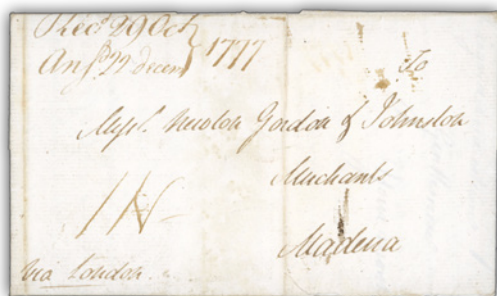 Rec.d 29 Oct
Ans.d 22 decem.r 1777
To
Mess.rs Newton Gordon & Johnston
Merchants
Madeira
1N
Via London